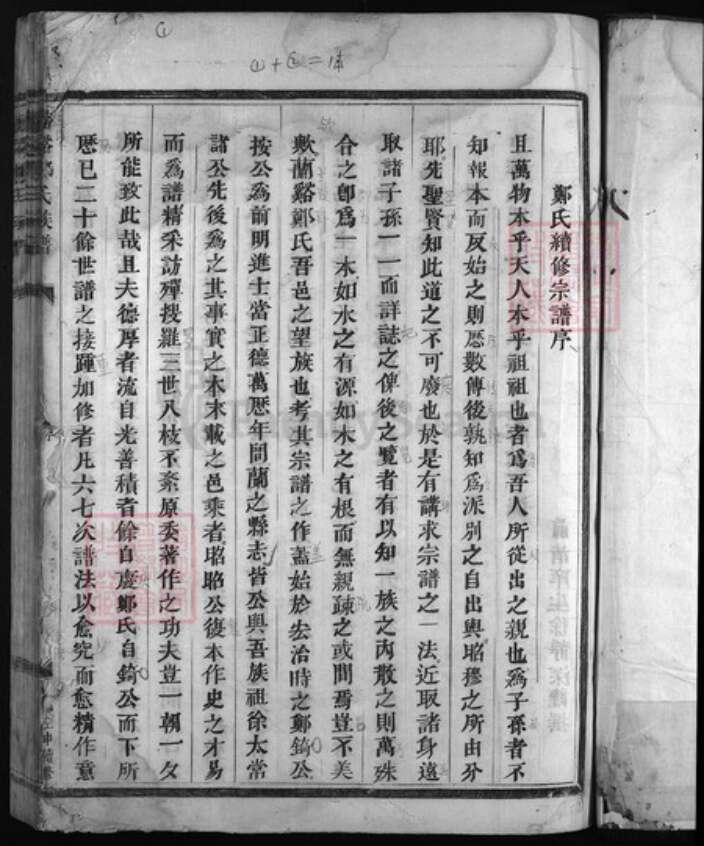 ①
①+②=本
鄭氏續修宗譜序
且萬物本乎天人本乎祖祖也者為吾人所從出之親也為子孫者不
知報本而反始之則厯數傳後孰知為派別之自出與昭穆之所由分
耶先聖賢知此道之不可廢也於是有講求宗譜之一法近取諸身遠
取諸子孫一一而詳誌之俾後之覽者有以知一族之內散之則萬殊
合之卽為一本如水之有源如木之有根而無親疎之或間焉豈不美
歟蘭谿鄭氏吾邑之望族也考其宗譜之作蓋始於宏治時之鄭錡公
按公為前明進士當正德萬厯年間蘭之縣志皆公與吾族祖徐太常
諸公先後為之其事實之本末載之邑乘者昭昭公復本作史之才易
而為譜精采訪殫搜羅三世八枝不紊原委著作之功夫豈一朝一夕
所能致此哉且夫德厚者流自光善積者餘自慶鄭氏自錡公而下所
厯已二十餘世譜之接踵加修者凡六七次譜法以愈究而愈精作意
氏族譜
FamilySearch